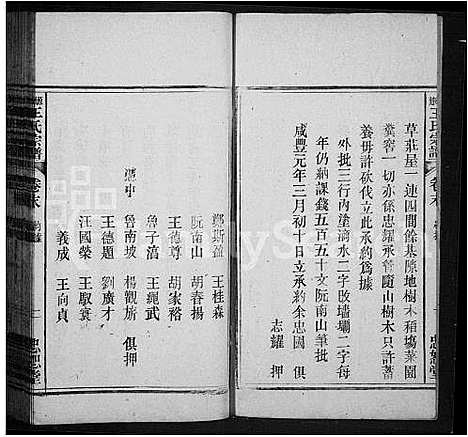 草莊屋一連四間餘基隙地樹木稻塲菜園
糞窖一切亦係忠耀管隨山樹木只許蓄
養毋許砍伐立此承約爲據
外批三行內塗滴水二字改墻壩二字每
年仍納課錢五百五十文阮南山筆批
咸豐元年三月初十日立承約余忠國俱
志耀押
鄭斯盈 王桂森
阮南山 胡春揚
王德尊 胡家裕
魯子滈 王繩武
憑中 魯南坡 楊觀旂 俱押
王德題 劉廣才
汪國榮 王馭寰
義成 王向貞
王氏宗譜
卷末
忠恕堂